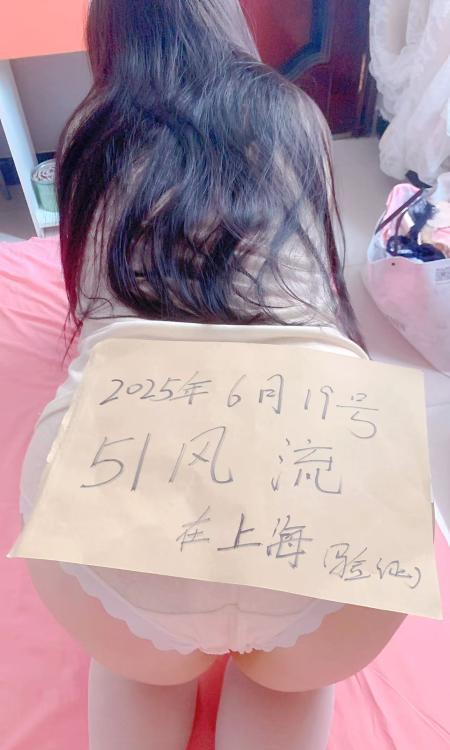 2025年6月19号
51风流
在上海(验证)